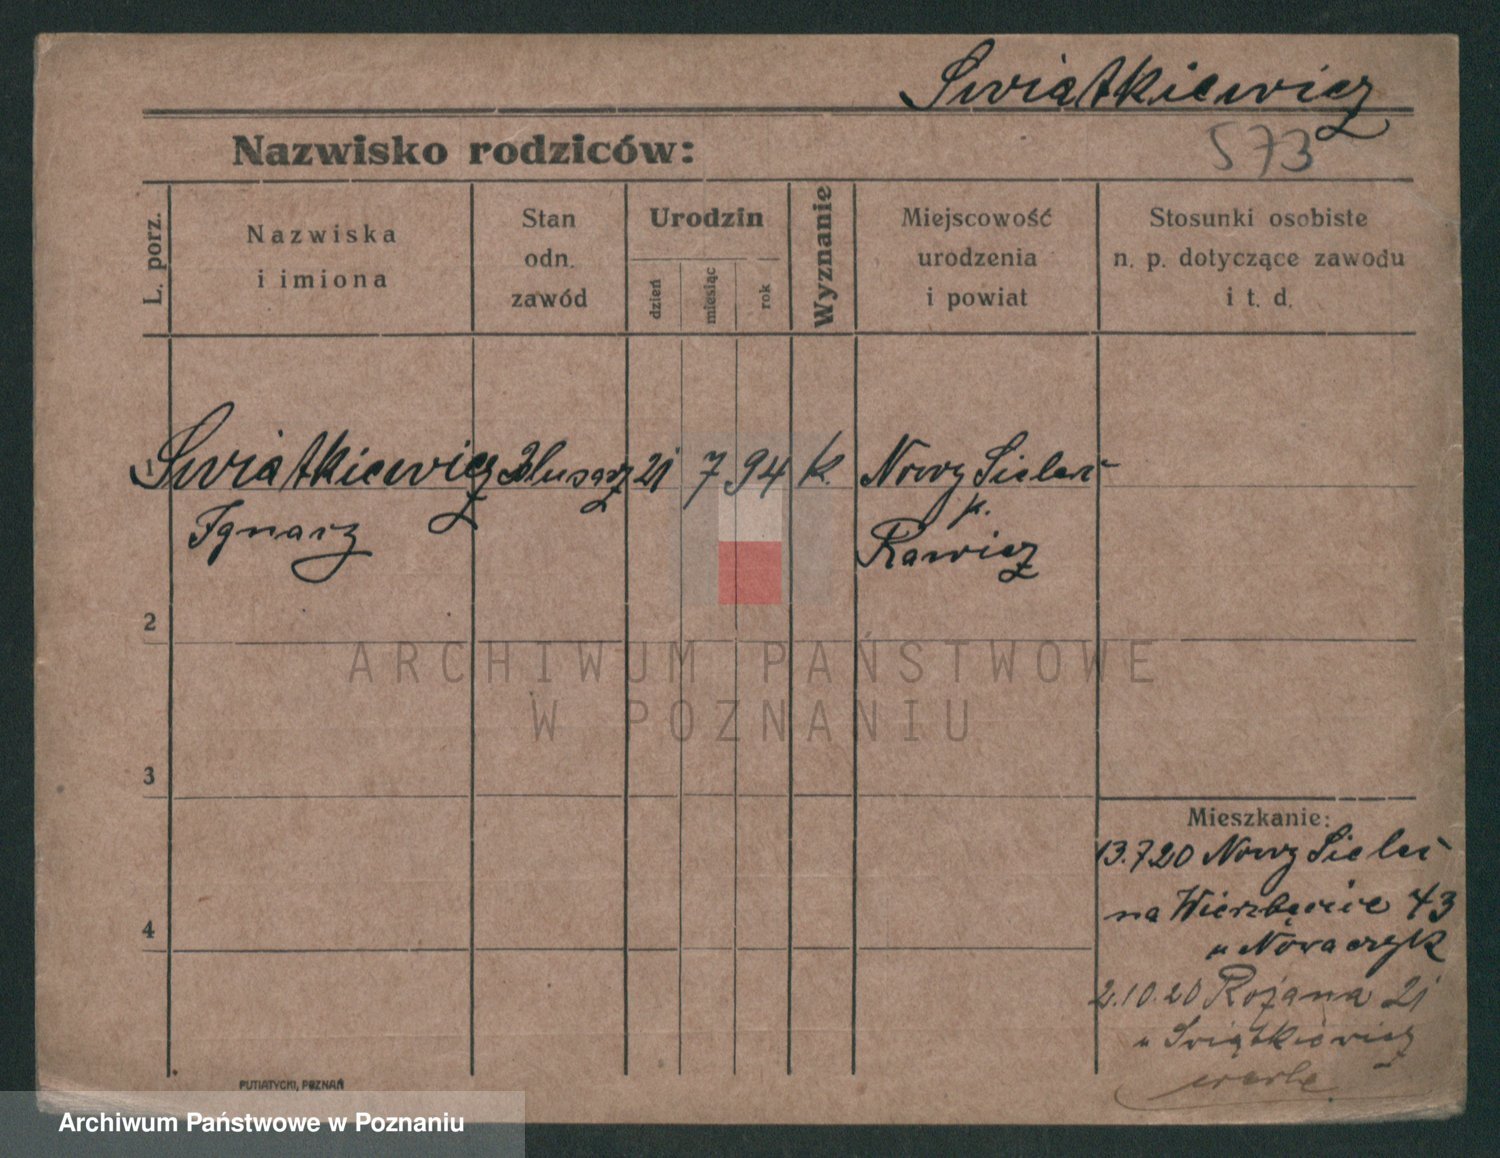 Swiątkiewicz
573
Nazwisko rodziców:
L. porz.
Nazwiska
i imiona
Stan
odn.
zawód
Urodzin
dzień
miesiąc
rok
Wyznanie
Miejscowość
urodzenia
i powiat
Stosunki osobiste
n. p. dotyczące zawodu
i t. d.
1 Swiątkiewicz ślusarz 21 7 94 k. Nowy Sieleń
p.
Ignacz Rawicz
2
ARCHIWUM PAŃSTWOWE
W POZNANIU
3
Mieszkanie:
13.7.20 Nowy Sieleń
na Wierzbięcice 43
u Nowaczyk
4
2.10.20 Różana 21
u Swiątkiewicz
PUTIATYCKI, POZNAŃ
Archiwum Państwowe w Poznaniu